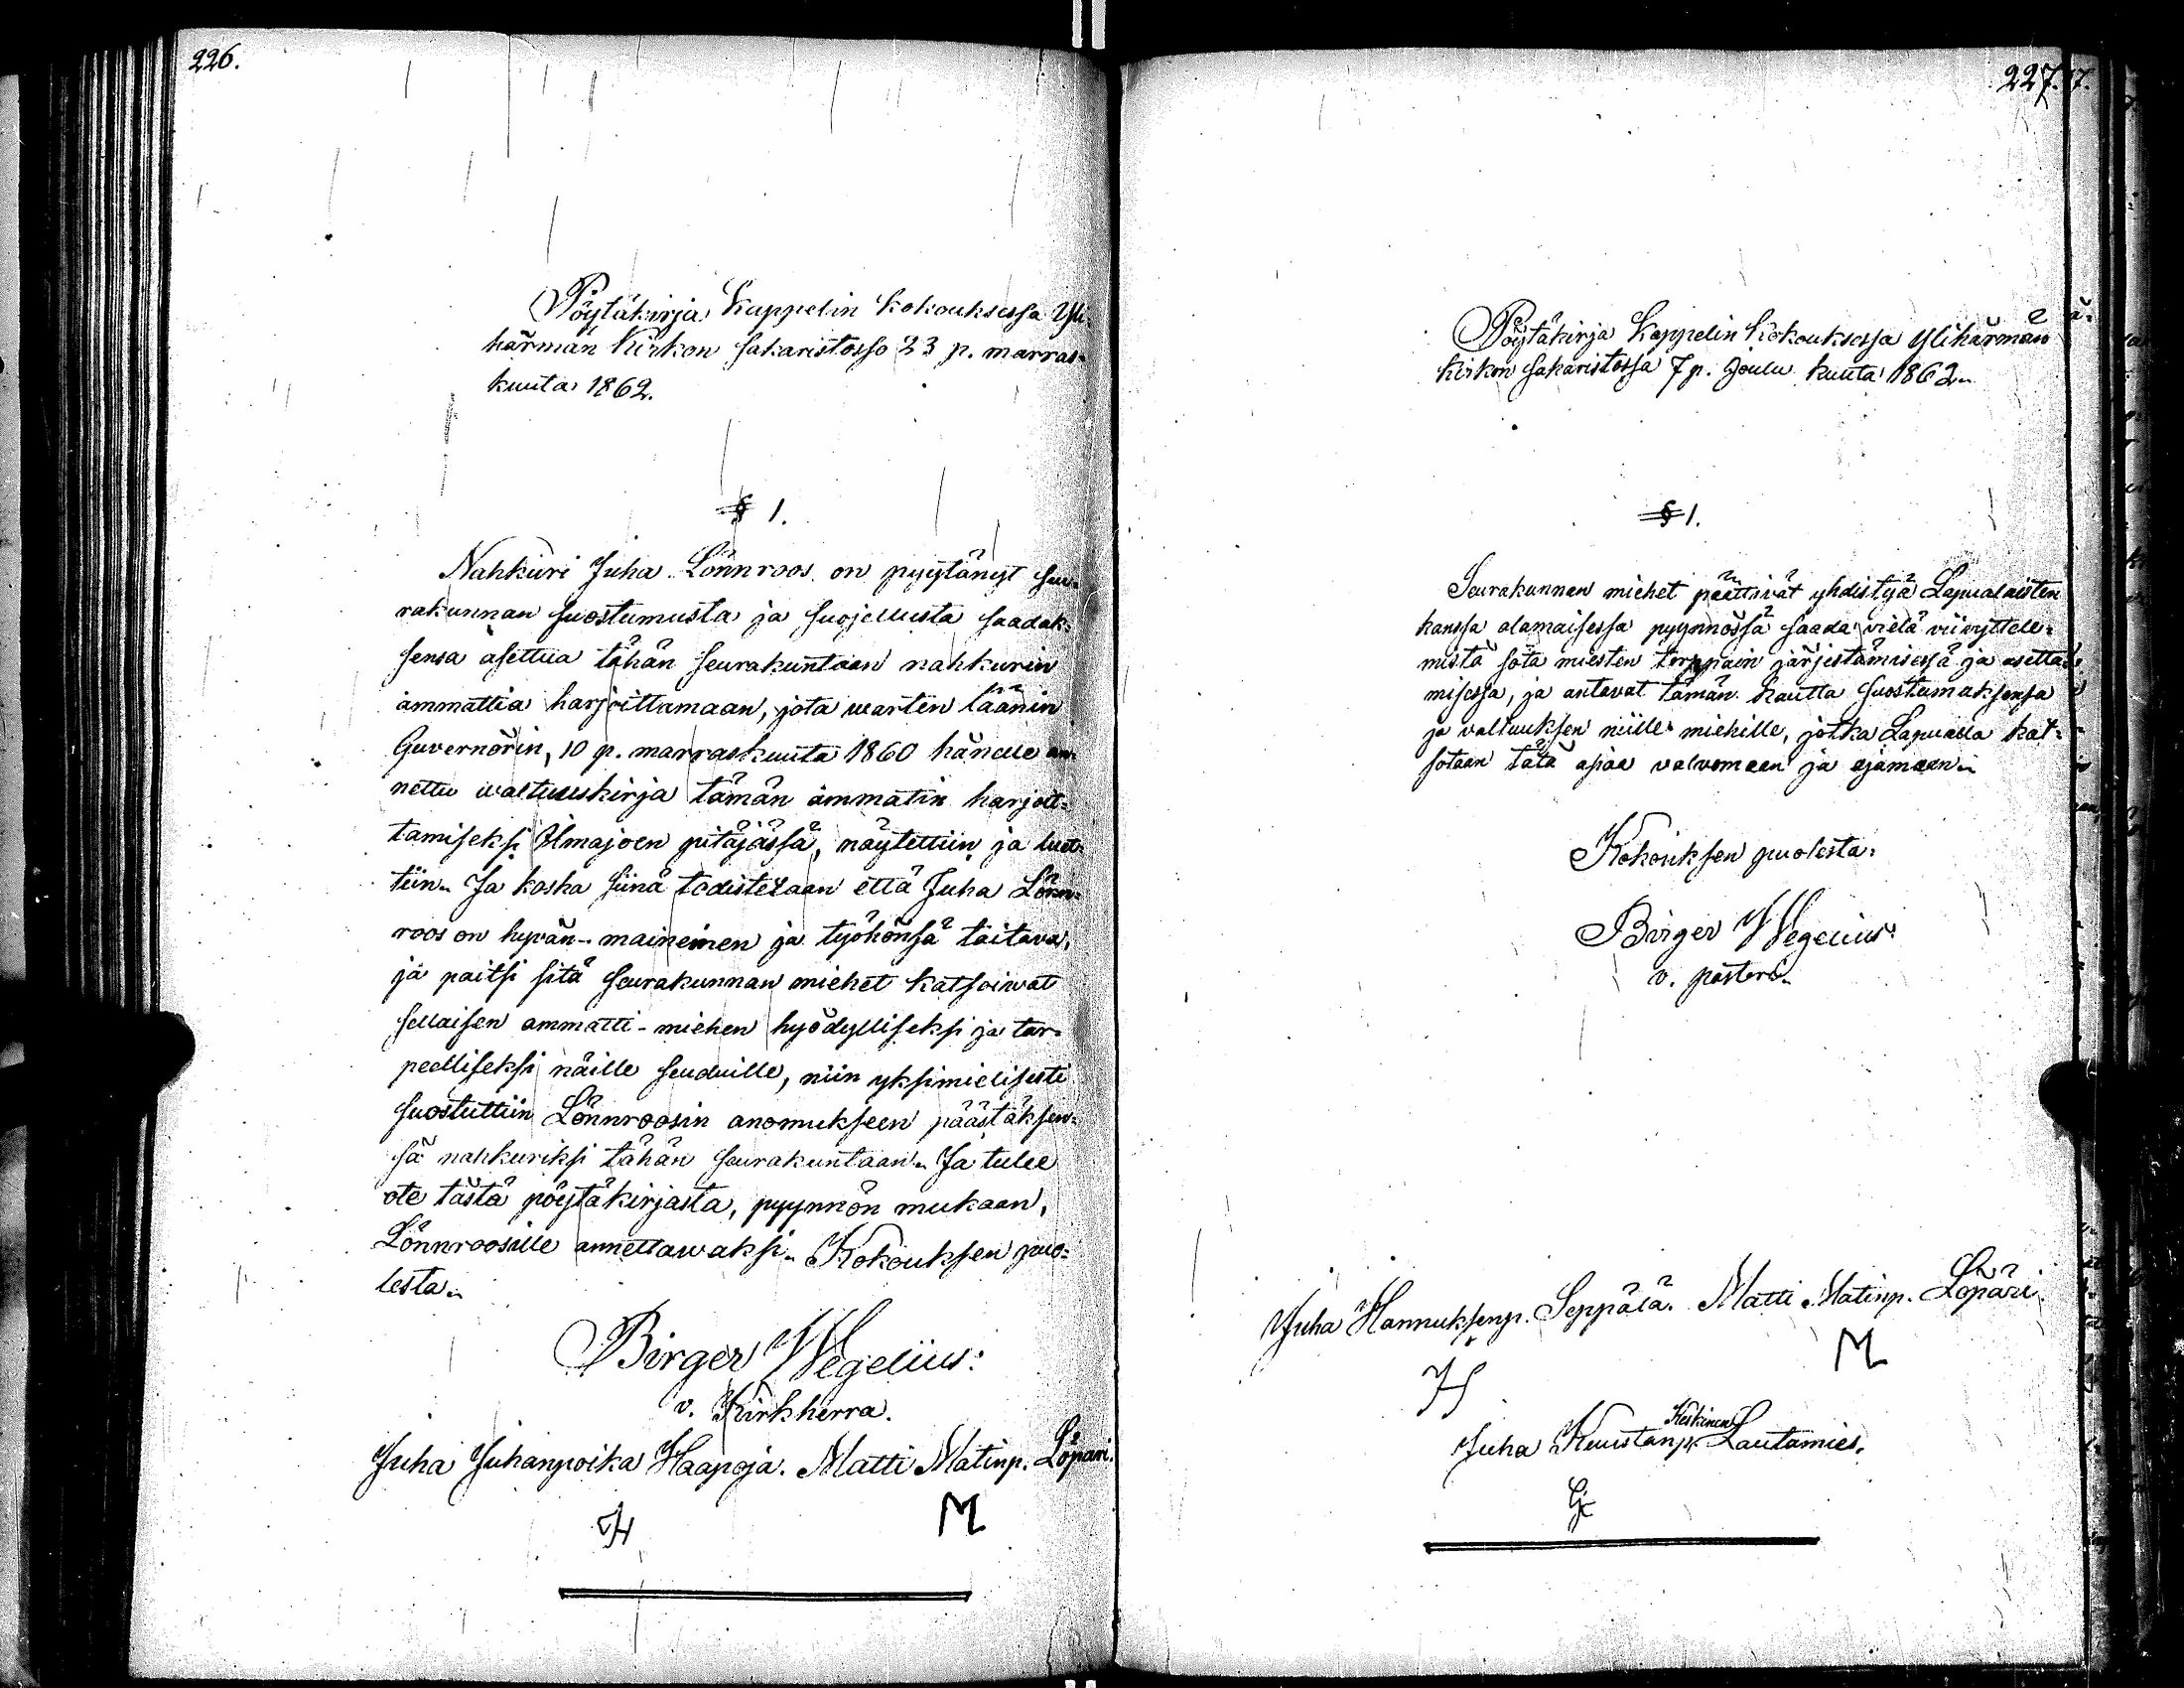 226.
Pöytäkirja Kappelin kokouksessa Yli-
härmän kirkon sakaristosso 23 p. marras-
kuuta 1862.
§ 1.
Nahkuri Juha Lönnroos on pyytänyt seu-
rakunnan suostumusta ja suojellusta saadak-
sensa asettua tähän seurakuntaan nahkurin
ammattia harjoittamaan, jota warten läänin
Guvernörin, 10 p. marraskuuta 1860 hänelle an-
nettu waltuuskirja tämän ammatin harjoit-
tamiseksi Ilmajoen pitäjässä, näytettiin ja luet-
tiin. Ja koska siinä todistetaan että Juha Lönn-
roos on hyvän-maineinen ja työhönsä taitava,
ja paitsi sitä seurakunnan miehet katsoiwat
sellaisen ammatti-miehen hyödylliseksi ja tar-
peelliseksi näille seuduille, niin yksimielisesti
suostuttiin Lönnroosin anomukseen päästäksen-
sä nahkuriksi tähän seurakuntaan. Ja tulee
ote tästä pöytäkirjasta, pyynnön mukaan,
Lönnroosille annettawaksi. Kokouksen puo-
lesta.
Birger Wegelius:
v. Kirkherra.
Juha Juhanpoika Haapoja. Matti Matinp. Löpäri.
JH M
227.
Pöytäkirja Kappelin kokouksessa Ylihärmän
kirkon sakaristossa 7 p. Joulu kuuta 1862.
§ 1.
Seurakunnan miehet päättivät yhdistyä Lapualaisten
kanssa alamaisessa pyynnössä saada vielä viivyttele-
mistä sota miesten torppain järjestämisessä ja asetta-
misessa, ja antavat tämän kautta suostumaksensa
ja valtuuksen niille miehille, jotka Lapualla kat-
sotaan tätä asiaa valvomaan ja ajamaan.
Kokouksen puolesta:
Birger Wegelius:
v. pastori.
Juha Hannuksenp. Seppälä. Matti Matinp. Löpäri.
H M
Keskinen
Juha Kuustanp. Lautamies.